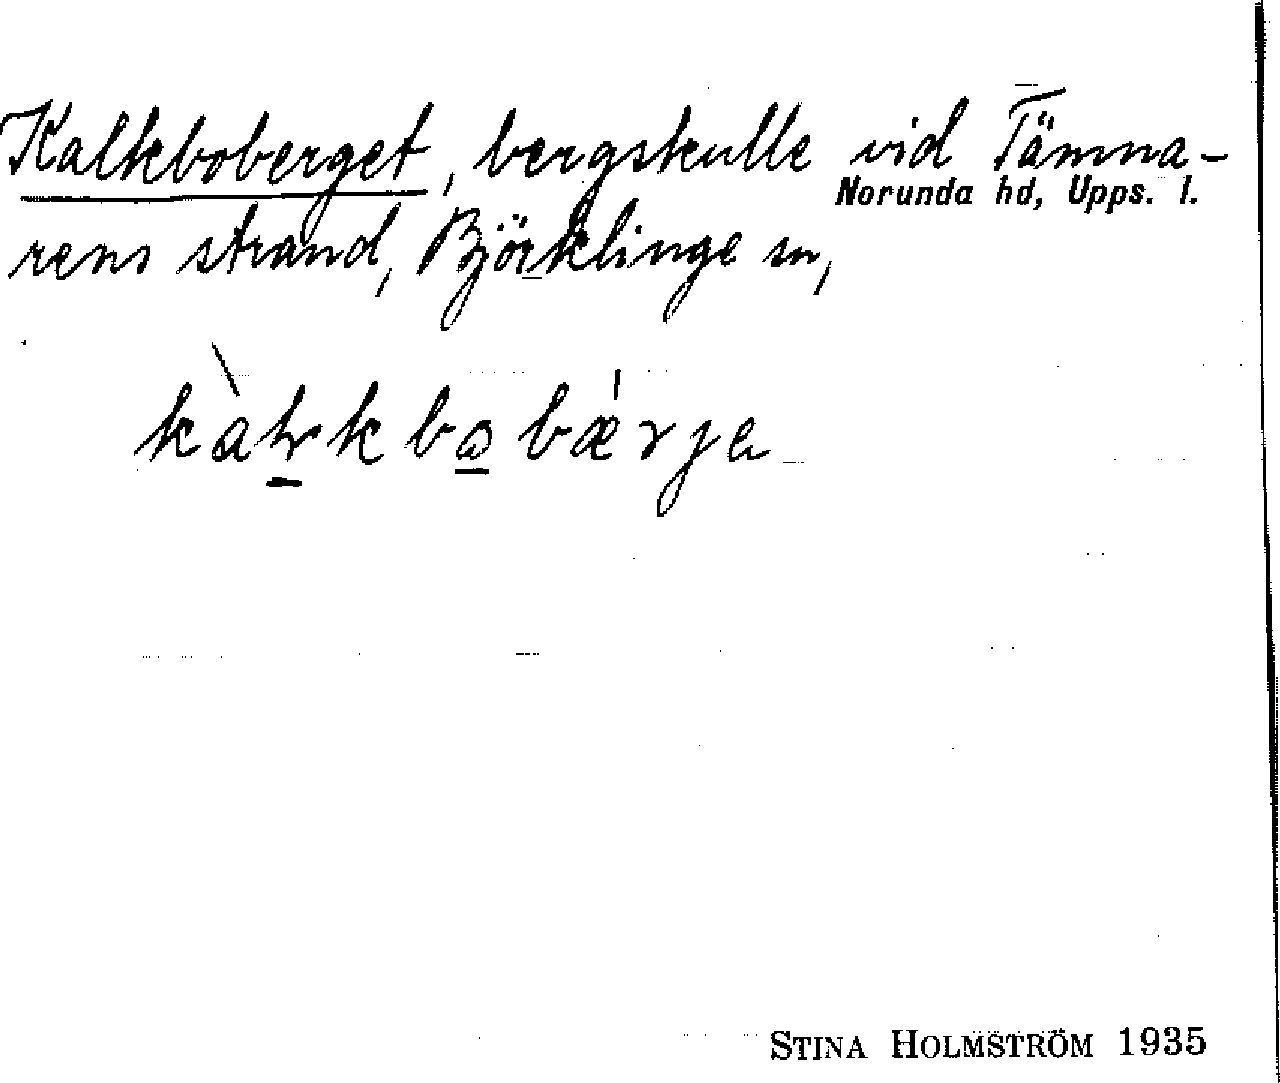 Kalkboberget, bergskulle vid Tämna-
Norunda hd, Upps. l.
rens strand, Björklinge sn,
STINA HOLMSTRÖM 1935